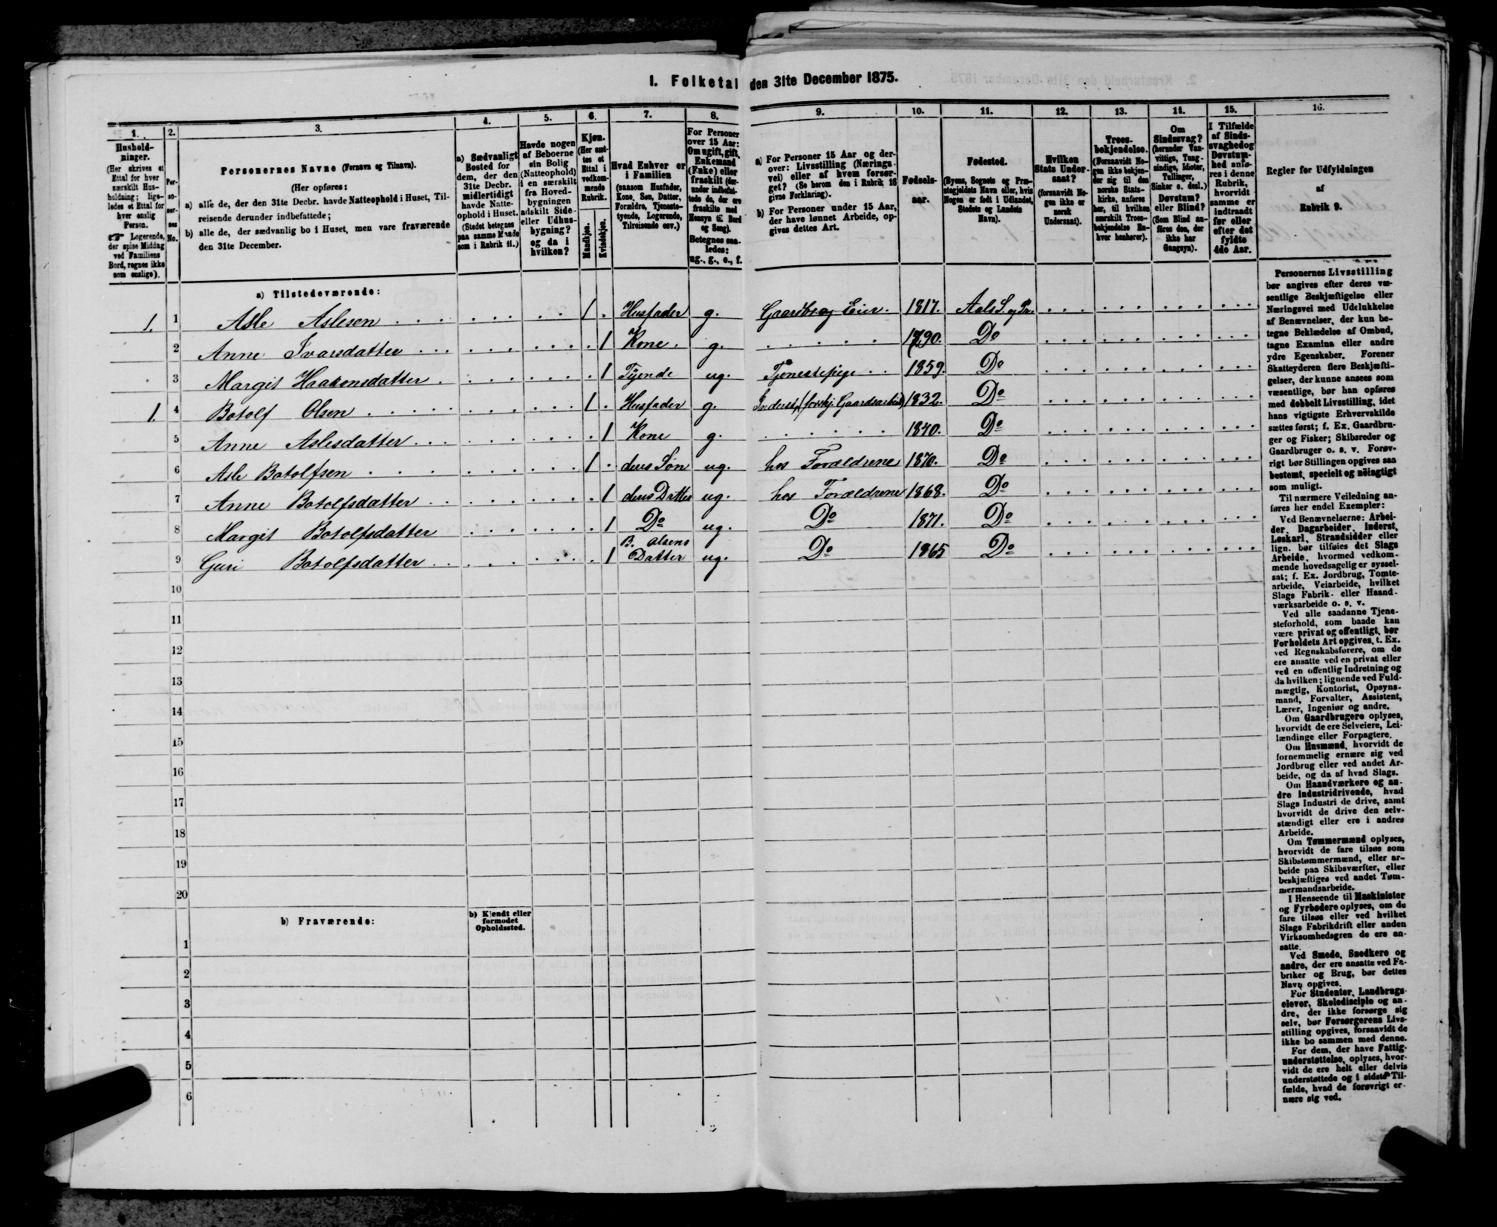 1. Folketal den 31te December 1875.
1. 2. 3. 4. 5. 6. 7. 8. 9. 10. 11. 12. 13. 14. 15. 16.
Hushold-
ninger.
(Her skrives et
Ettal for hver
særskilt Hus-
holdning; lige-
ledes et Ettal for
hver enslig
Person.
☞ Logerende,
der spise Middag
ved Familiens
Bord, regnes ikke
som enslige).
Per-
soner-
nes
No.
Personernes Navne (Fornavn og Tilnavn).
(Her opføres:
a) alle de, der den 31te Decbr. havde Natteophold i Huset, Til-
reisende derunder indbefattede;
b) alle de, der sædvanlig bo i Huset, men vare fraværende
den 31te December.
a) Sædvanligt
Bosted for
dem, der den
31te Decbr.
midlertidigt
havde Natte-
ophold i Huset.
(Stedet betegnes
paa samme Maade
som i Rubrik 11.)
Havde nogen
af Beboerne
sin Bolig
(Natteophold)
i en særskilt
fra Hoved-
bygningen
adskilt Side-
eller Udhus-
bygning?
og da i
hvilken?
Kjøn.
(Her sæt-
tes et
Ettal i
vedkom-
mende
Rubrik.
Mandkjøn.
Kvindekjøn.
Hvad Enhver er
i Familien
(saasom Husfader,
Kone, Søn, Datter,
Forældre, Tjeneste-
tyende, Logerende,
Tilreisende osv.)
For Personer
over 15 Aar:
Om ugift, gift,
Enkemand
(Enke) eller
fraskilt (der-
under indbefat-
tede de, der ere
fraskilte med
Hensyn til Bord
og Seng).
Betegnes saa-
ledes:
ug., g., e., f.
a) For Personer 15 Aar og der-
over: Livsstilling (Nærings-
vei) eller af hvem forsør-
get? (Se herom den i Rubrik 16
givne Forklaring).
b) For Personer under 15 Aar,
der have lønnet Arbeide, op-
gives dettes Art.
Fødsels-
aar.
Fødested.
(Byens, Sognets og Præ-
stegjeldets Navn eller, hvis
Nogen er født i Udlandet,
Stedets og Landets
Navn).
Hvilken
Stats Under-
saat?
(forsaavidt No-
gen ikke er
norsk
Undersaat).
Troes-
bekjendelse.
(Forsaavidt No-
gen ikke bekjen-
der sig til den
norske Stats-
kirke, anføres
her, til hvilken
særskilt Troes-
bekjendelse No-
hver henhører).
Om
Sindssvag?
(herunder Van-
vittige, Tung-
sindige, Idioter,
Tullinger,
Sinker o. desl.)
Døvstum?
eller Blind?
(Som Blind an-
føres den, der
ikke har
Gangsyn).
I Tilfælde
af Sinds-
svaghed og
Døvstum-
hed anfø-
res i denne
Rubrik,
hvorvidt
samme er
indtraadt
før eller
efter det
fyldte
4de Aar.
Regler for Udfyldningen
af
Rubrik 9.
a) Tilstedeværende:
1. 1 Asle Aslesen 1 Husfader g. Gaardbr. og Eier. 1817. Aals S. og Pr.
2 Anne Ivarsdatter 1 Kone. g. 1790. Do
3 Margit Haakensdatter 1 Tyende ug. Tjenestepige 1859. Do
1. 4 Botolf Olsen 1 Husfader g. Gaardsarbeid 1832. Do
5 Anne Aslesdatter 1 Kone g. 1840. Do
6 Asle Botolfsen 1 deres Søn ug. hos Forældrene 1870. Do
7 Anne Botolfsdatter 1 deres Datter ug. hos Forældrene 1868. Do
8 Margit Botolfsdatter 1 Do ug. Do 1871. Do
9 Guri Botolfsdatter 1 B. Olsens Datter ug. Do 1865 Do
10
11
12
13
14
15
16
17
18
19
20
b) Fraværende:
b) Kjendt eller
formodet
Opholdssted.
1
2
3
4
5
6
Personernes Livsstilling
bør angives efter deres væ-
sentlige Beskjæftigelse eller
Næringsvei med Udelukkelse
af Benævnelser, der kun be-
tegne Beklædelse af Ombud,
tagne Examina eller andre
ydre Egenskaber. Forener
Skatteyderen flere Beskjæfti-
gelser, der kunne ansees som
væsentlige, bør han opføres
med dobbelt Livsstilling, idet
hans vigtigste Erhvervskilde
sættes først; f. Ex. Gaardbru-
ger og Fisker; Skibsreder og
Gaardbruger o. s. v. Forøv-
rigt bør Stillingen opgives saa
bestemt, specielt og nøiagtigt
som muligt.
Til nærmere Veiledning an-
føres her endel Exempler:
Ved Benævnelserne: Arbei-
der, Dagarbeider, Inderst,
Løskarl, Strandsidder eller
lign. bør tilføies det Slags
Arbeide, hvormed vedkom-
mende hovedsagelig er syssel-
sat; f. Ex. Jordbrug, Tomte-
arbeide, Veiarbeide, hvilket
Slags Fabrik- eller Haand-
værksarbeide o. s. v.
Ved alle saadanne Tjene-
steforhold, som baade kan
være privat og offentligt, bør
Forholdets Art opgives, t. Ex.
ved Regnskabsførere, om de
ere ansatte ved en privat eller
ved en offentlig Indretning og
da hvilken; lignende ved Fuld-
mægtig, Kontorist, Opsyns-
mand, Forvalter, Assistent,
Lærer, Ingeniør og andre.
Om Gaardbrugere oplyses,
hvorvidt de ere Selveiere, Lei-
lændinge eller Forpagtere.
Om Husmænd, hvorvidt de
fornemmelig ernære sig ved
Jordbrug eller ved andet Ar-
beide, og da af hvad Slags.
Om Haandværkere og an-
dre Industridrivende, hvad
Slags Industri de drive, samt
hvorvidt de drive den selv-
stændigt eller ere i andres
Arbeide.
Om Tømmermænd oplyses,
hvorvidt de fare tilsøs som
Skibstømmermænd, eller ar-
beide paa Skibsværfter, eller
beskjæftiges ved andet Tøm-
mermandsarbeide.
I Henseende til Maskinister
og Fyrbødere oplyses, om de
fare tilsøs eller ved hvilket
Slags Fabrikdrift eller anden
Virksomhedsgren de ere an-
satte.
Ved Smede, Snedkere og
andre, der ere ansatte ved Fa-
briker og Brug, bør dettes
Navn opgives.
For Studenter, Landbrugs-
elever, Skoledisciple og an-
dre, der ikke forsørge sig
selv, bør Forsørgerens Livs-
stilling opgives, forsaavidt de
ikke bo sammen med denne.
For dem, der have Fattig-
understøttelse, oplyses, hvor-
vidt de ere helt eller delvis
understøttede og i sidste Til-
fælde, hvad de forøvrigt er-
nære sig ved.